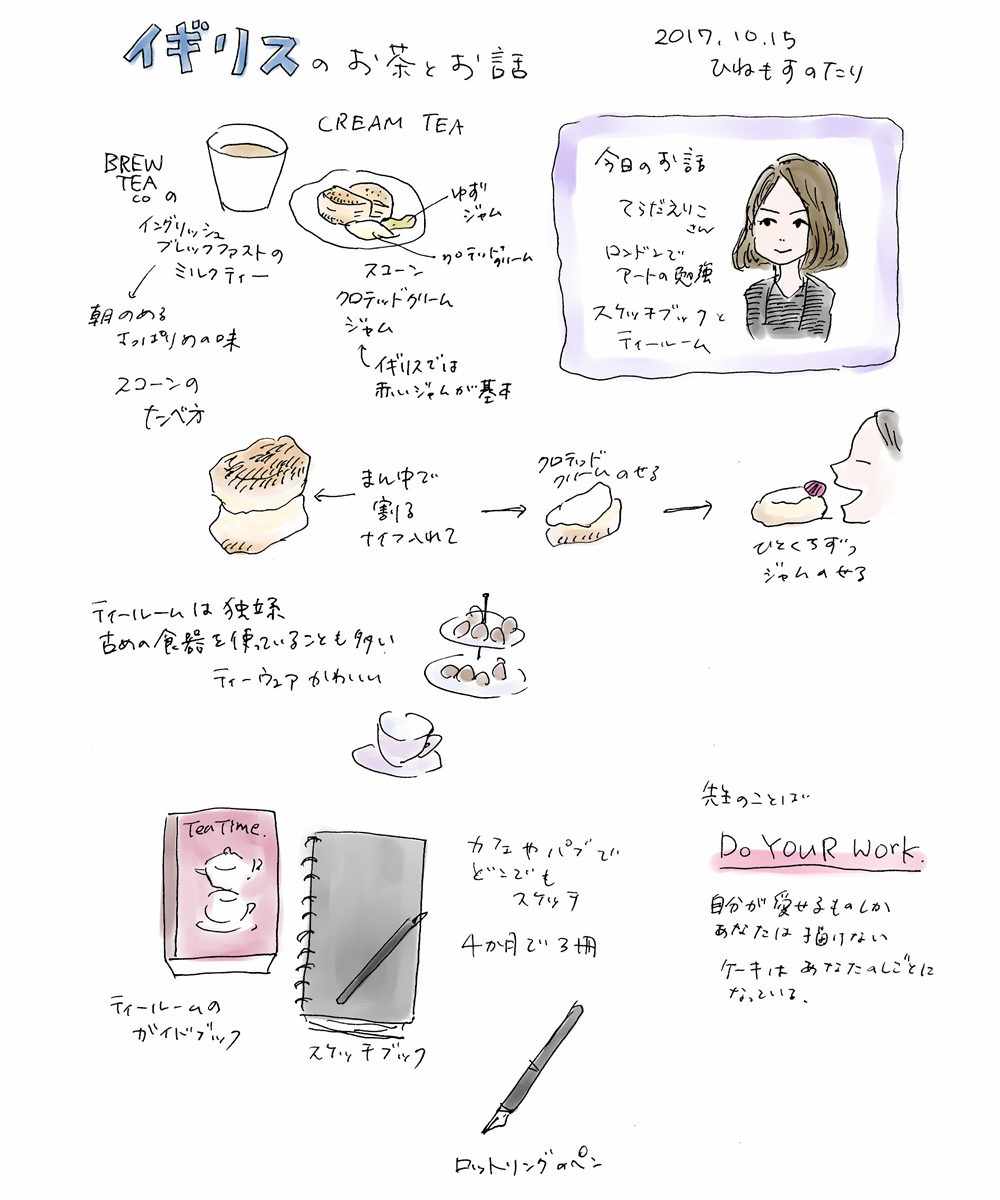 イギリスのお茶とお話
2017.10.15
ひねもすのたり
CREAM TEA
BREW
TEA
CO の
イングリッシュ
ブレックファストの
ミルクティー
朝のめる
さっぱりめの味
ゆず
ジャム
クロテッドクリーム
スコーン
クロテッドクリーム
ジャム
イギリスでは
赤いジャムが基本
今日のお話
てらだえりこ
さん
ロンドンで
アートの勉強
スケッチブックと
ティールーム
スコーンの
たべ方
まん中で
割る
ナイフ入れて
クロテッド
クリームのせる
ひとくちずつ
ジャムのせる
ティールームは独立系
古めの食器を使っていることも多い
ティーウェアかわいい
Tea Time.
ティールームの
ガイドブック
スケッチブック
カフェやパブで
どこでも
スケッチ
4か月で3冊
ロットリングのペン
先生のことば
Do YOUR Work.
自分が愛せるものしか
あなたは描けない
ケーキはあなたのしごとに
なっている.